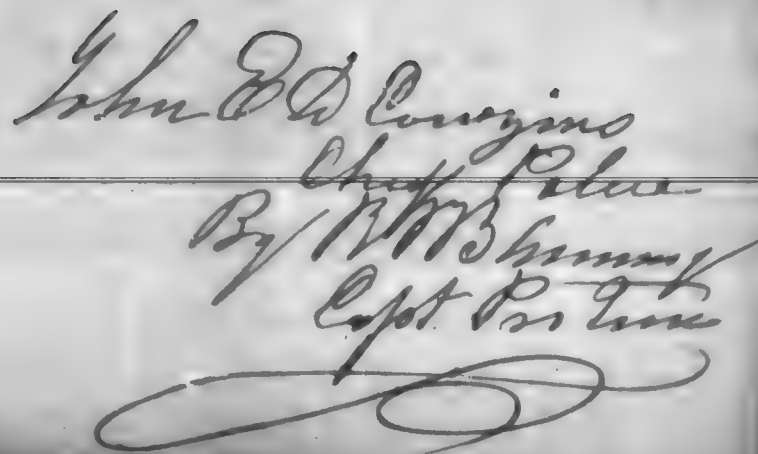 John E D Couzins
Chief Police
By R B
Capt Pro Tem